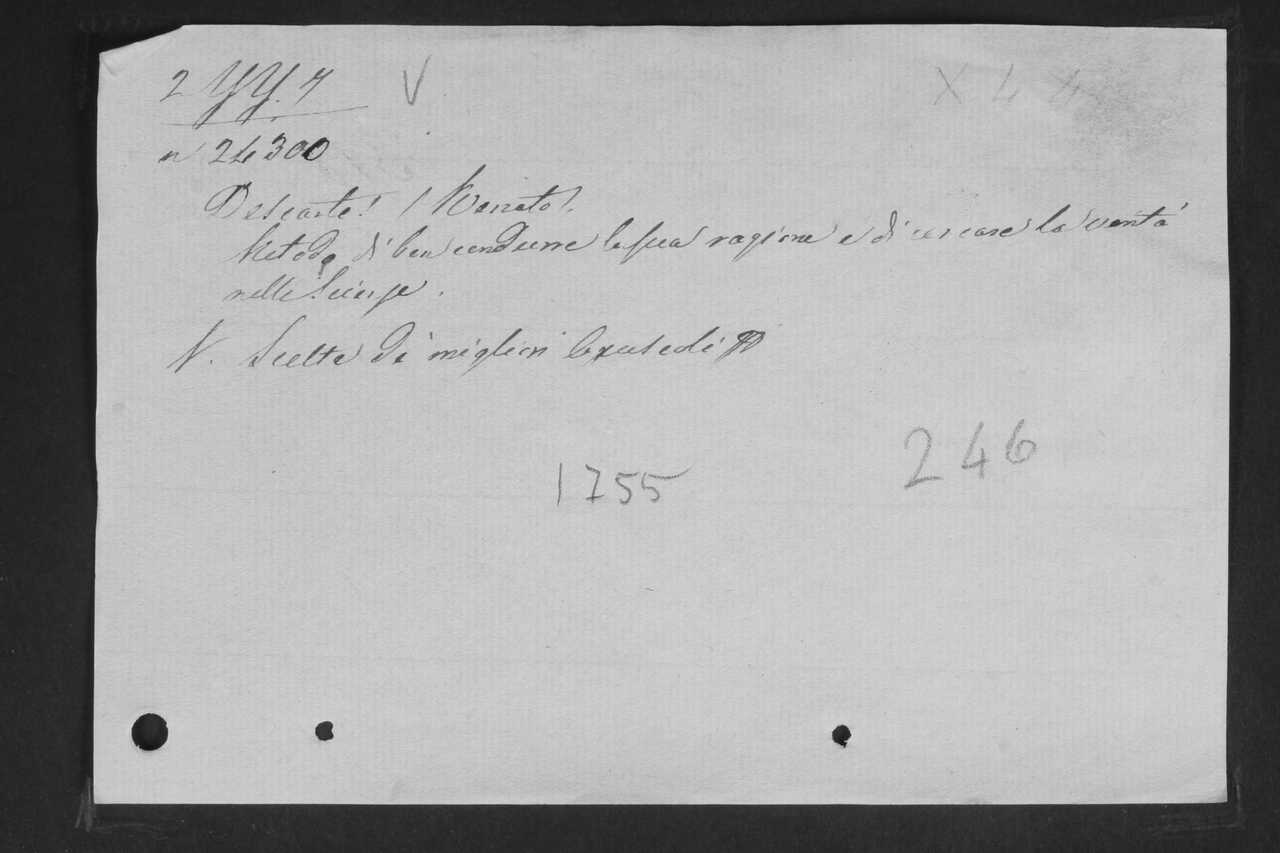 2 YY. 7 V X 4 4
n 24300
Descartes (Renato).
Metodo di ben condurre la sua ragione e di cercare la verità
nelle Scienze.
V. Scelta di migliori Opuscoli
1755 246